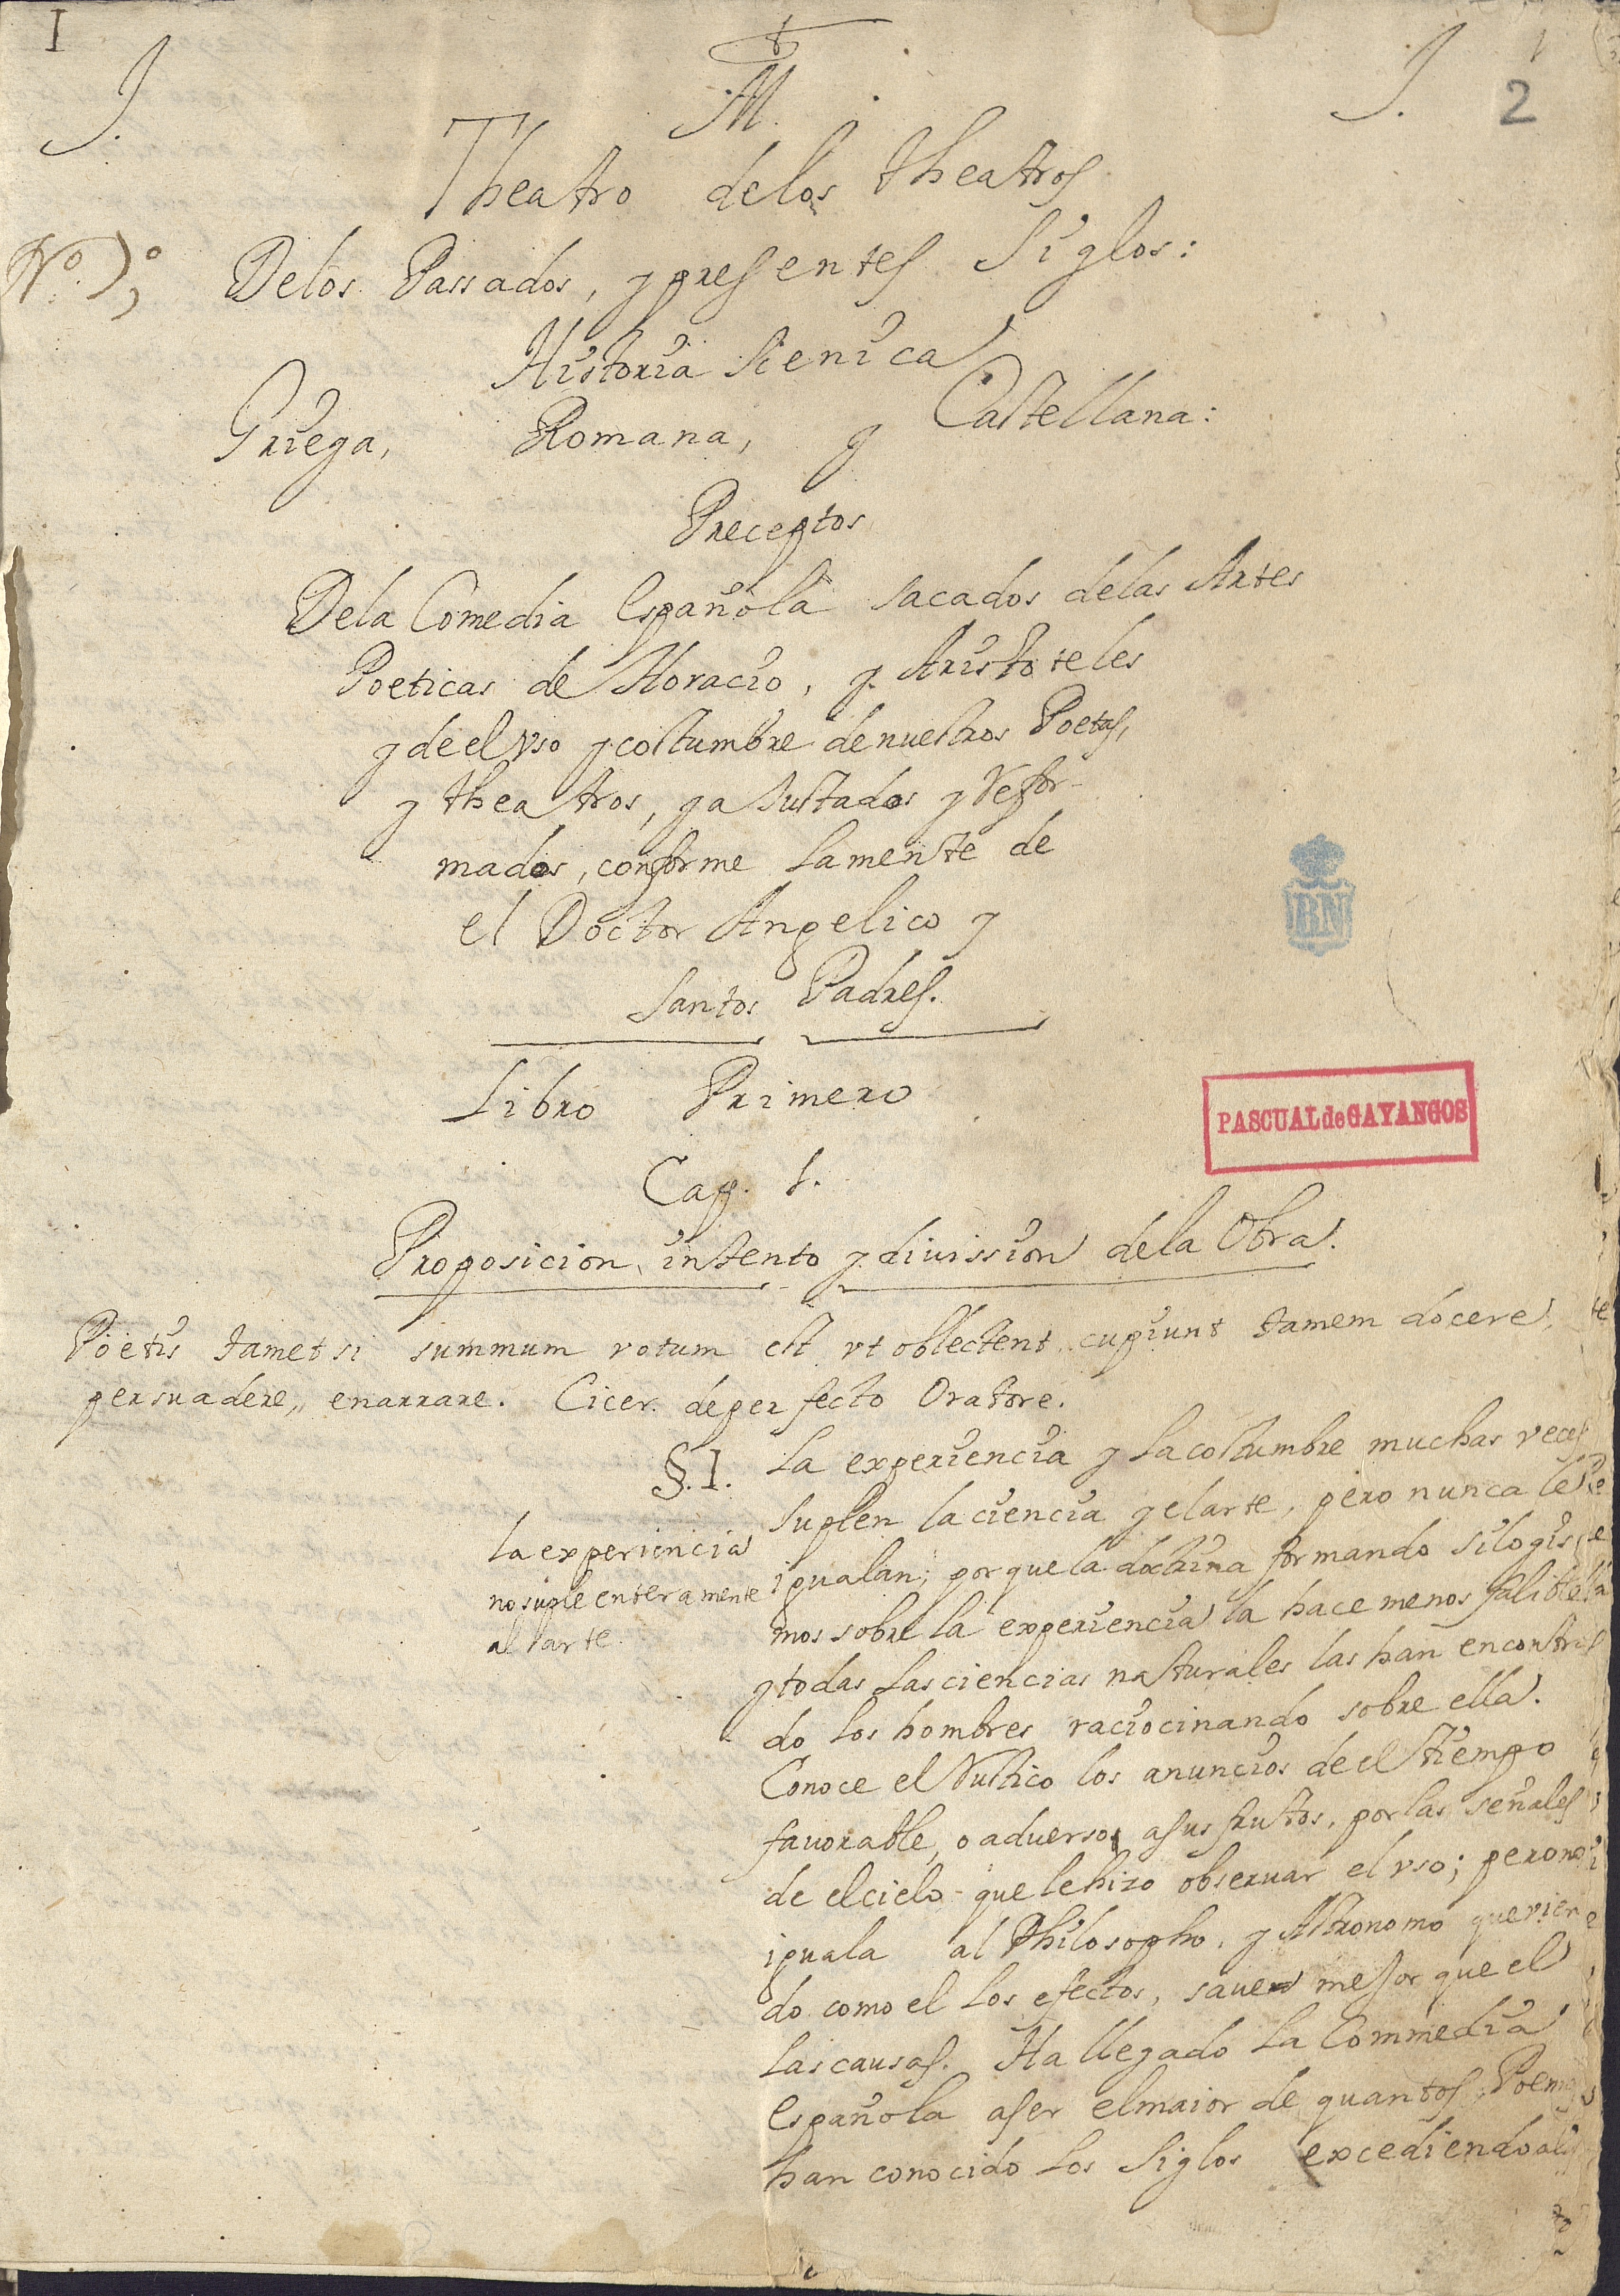 I
J. M. J. 2
Theatro delos theatros
Nº 1º
Delos Passados, y presentes Siglos:
Historia Scenica
Griega, Romana, y Castellana:
Preceptos
Dela Comedia Española sacados delas Artes
Poeticas de Horacio, y Aristoteles
y de el vso y costumbre de nuestros Poetas,
y theatros, y aJustados y Refor-
mados, conforme la mente de
el Doctor Angelico y
Santos Padres.
Libro Primero
Cap. 1.
Proposicion, intento y diuission dela Obra.
Poetis tametsi summum votum est vt oblectent cupiunt tamem docere,
persuadere, enarrare. Cicer. de perfecto Oratore.
§. I.
la experiencia
no suple enteramente
al arte.
La experiencia y la costumbre muchas veces
suplen la ciencia y el arte, pero nunca le
igualan; por que la doctrina formando silogis
mos sobre la experiencia la hace menos falible
y todas las ciencias naturales las han encontra
do los hombres raciocinando sobre ella.
Conoce el Rustico los anuncios de el tiempo
fauorable, o aduerso a sus frutos, por las señales
de el cielo que le hizo obseruar el vso; pero no
iguala al Philosopho, y Astronomo que vien
do como el los efectos, saue mejor que el
las causas. Ha llegado la Commedia
española a ser el maior de quantos Poemas
han conocido los Siglos excediendo a
PASCUAL de GAYANGOS
BN